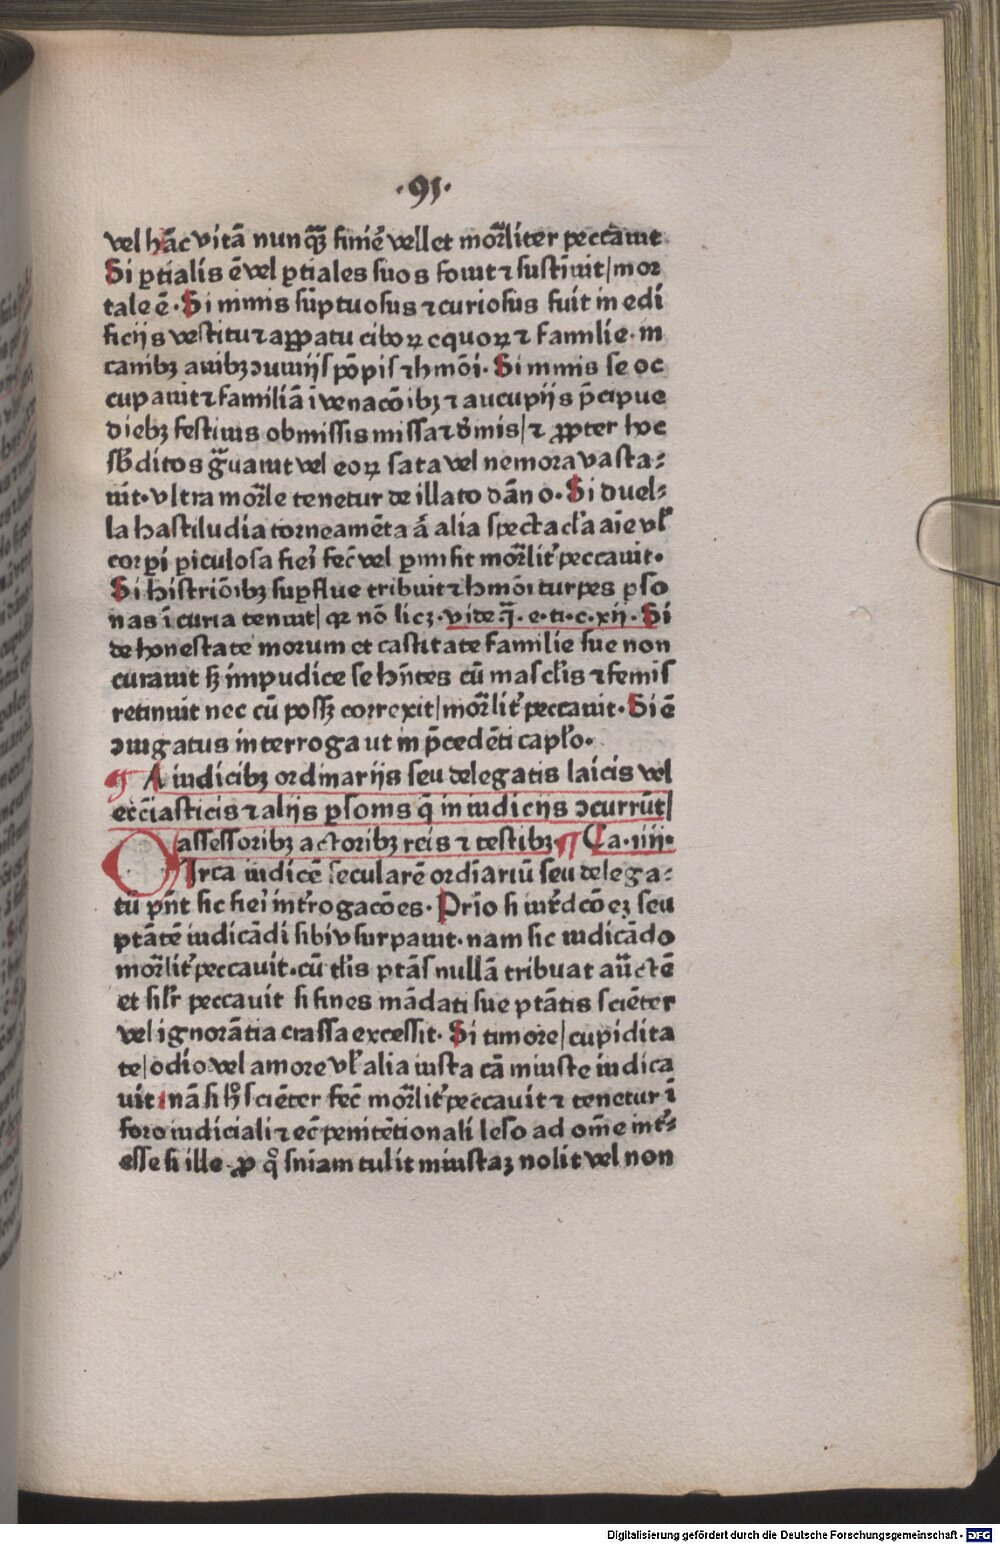 ·91·
vel hāc vitā nunq̄ꝫ finiē vellet mor̄liter peccauit
Si ꝑtialis ē vel ꝑtiales suos fouit ⁊ sustīuit/mor
tale ē·Si nimis sūptuosus ⁊ curiosus fuit in edi
ficijs vestitu ⁊ apꝑatu ciboꝝ equoꝝ ⁊ familie·in
canibꝫ auibꝫ ↄuiuijs pōpis ⁊ hmōi·Si nimis se oc
cupauit ⁊ familiā i venacōibꝫ ⁊ aucupijs p̄cipue
diebꝫ festiuis obmissis missa ⁊ diuīis/⁊ ꝓpter hoc
sbditos g̃uauit vel eoꝝ sata vel nemora vasta⸗
uit·vltra mor̄le tenetur de illato dāno·Si duel⸗
la hastiludia torneamēta ā alia spectacl̄a aīe vl̓
corꝑi ꝑiculosa fieri fec̄ vel ꝑmisit mor̄lit̓ peccauit·
Si histriōibꝫ suꝑflue tribuit ⁊ hmōi turpes ꝑso
nas ī curia tenuit/qꝛ nō licꝫ·vide.q̄.e·ti·c·xij·Si
de honestate morum et castitate familie sue non
curauit sꝫ impudice se hn̄tes cū mascl̄is ⁊ femis
retinuit nec cū possꝫ correxit/mor̄lit̓ peccauit·Si ē
ↄiugatus interroga ut in p̄cedēti capl̓o·
¶ A iudicibꝫ ordinarijs seu delegatis laicis vel
ecc̄iasticis ⁊ alijs ꝑsonis q̄ in iudicijs ↄcurrūt/
assessoribꝫ actoribꝫ reis ⁊ testibꝫ ¶ Ca·iiij·
CIrca iudicē secularē ordīariū seu delega⸗
tū pn̄t sic fieri int̓rogacōes·Prīo si iur̄dcōeꝫ seu
ptātē iudicādi sibi vsurpauit·nam sic iudicādo
mor̄lit̓ peccauit·cū tl̄is ptās nullā tribuat auctē
et sil̓r peccauit si fines mādati sue ptātis sciēter
vel ignorātia crassa excessit·Si timore/cupidita
te/odio vel amore vl̓ alia iusta cā iniuste iudica
uit nā si h̓ sciēter fec̄ mor̄lit̓ peccauit ⁊ tenetur ī
foro iudiciali ⁊ ec̄ penitētionali leso ad om̄e int̓⸗
esse si ille ꝓ q̊ sniam tulit iniustaꝫ nolit vel non
Digitalisierung gefördert durch die Deutsche Forschungsgemeinschaft - DFG